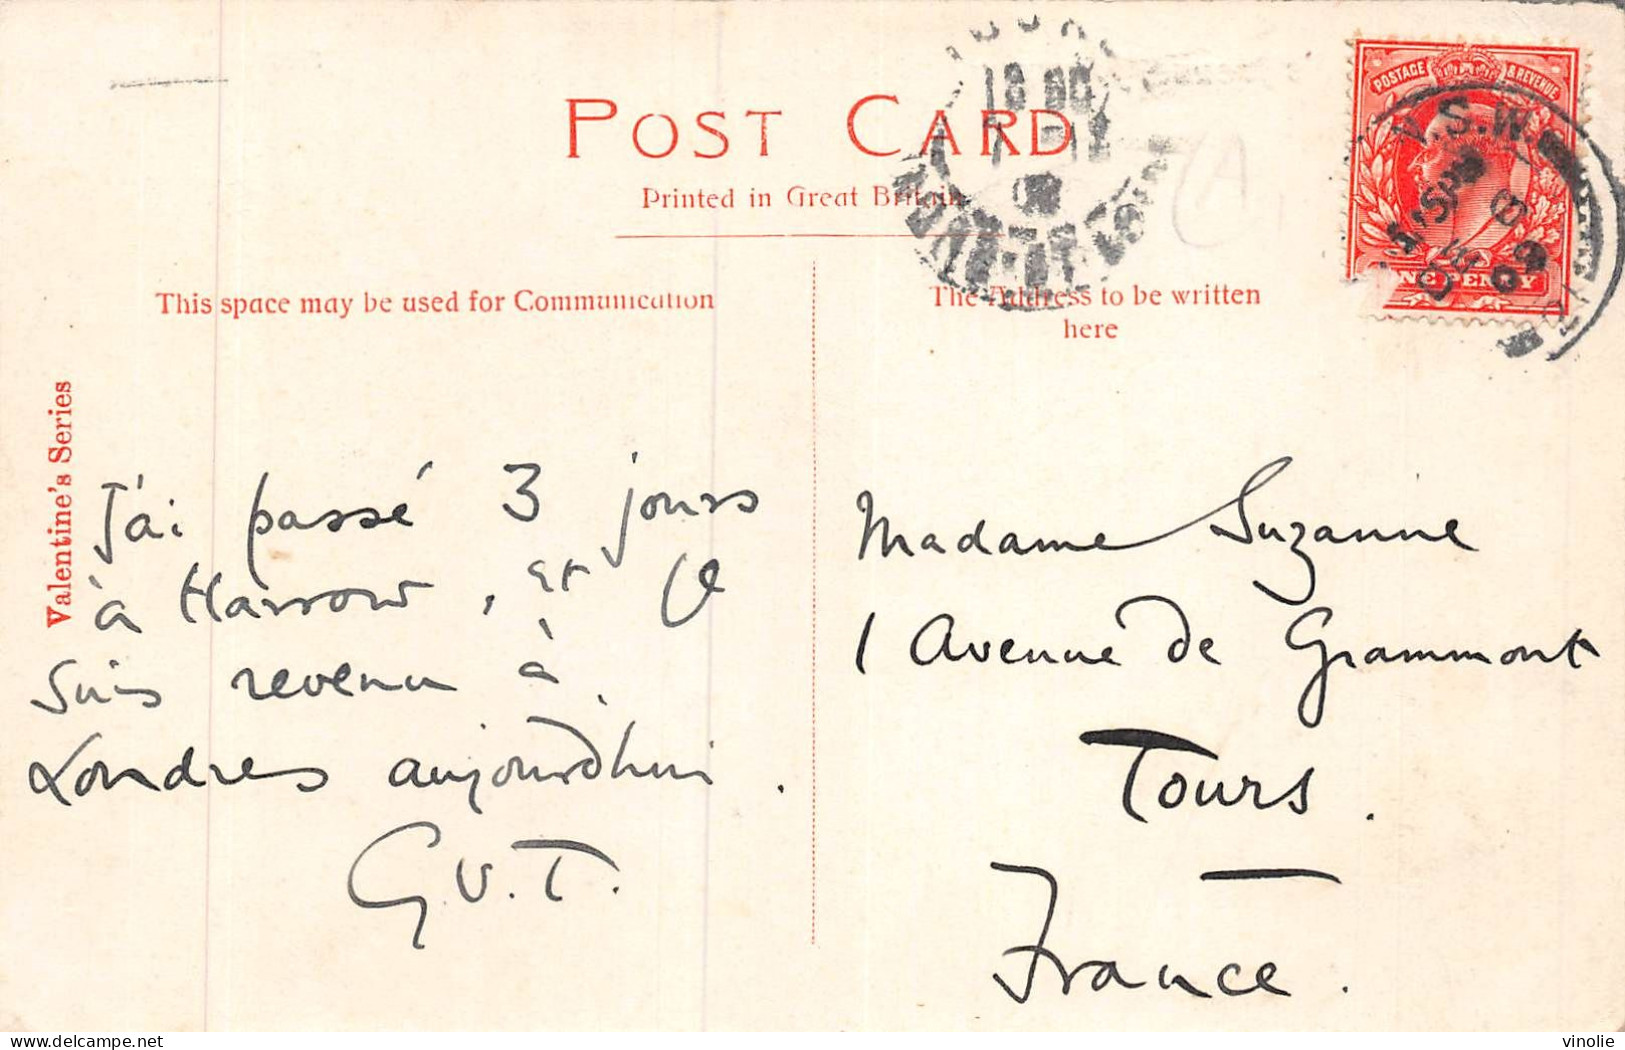 POST CARD
Printed in Great Britain
This space may be used for Communication
The Address to be written
here
Valentine's Series
POSTAGE & REVENUE
ONE PENNY
S.W.
5.15 PM
09
TOURS
18
7
09
J'ai passé 3 jours
à Harrow, et je
suis revenu à
Londres aujourd'hui.
G.V.T.
Madame Suzanne
1 Avenue de Grammont
Tours.
France.
vinolie